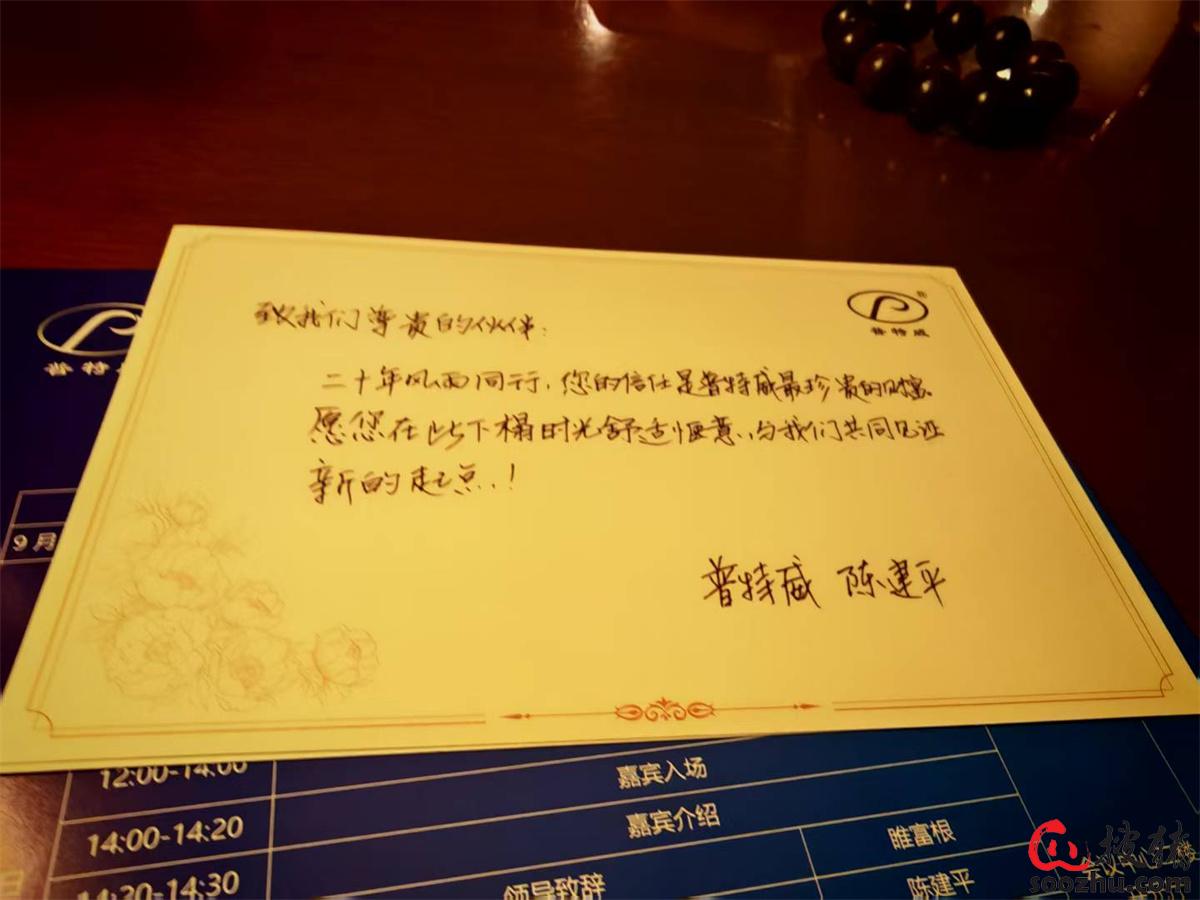 普特威
致我们尊贵的伙伴:
二十年风雨同行,您的信任是普特威最珍贵的财富。
愿您在此下榻时光舒适惬意,与我们共同见证
新的起点!
普特威 陈建平
普特
9月
12:00-14:00 嘉宾入场
14:00-14:20 嘉宾介绍 睢富根
14:20-14:30 领导致辞 陈建平
会议中心 楼
搜猪
soozhu.com